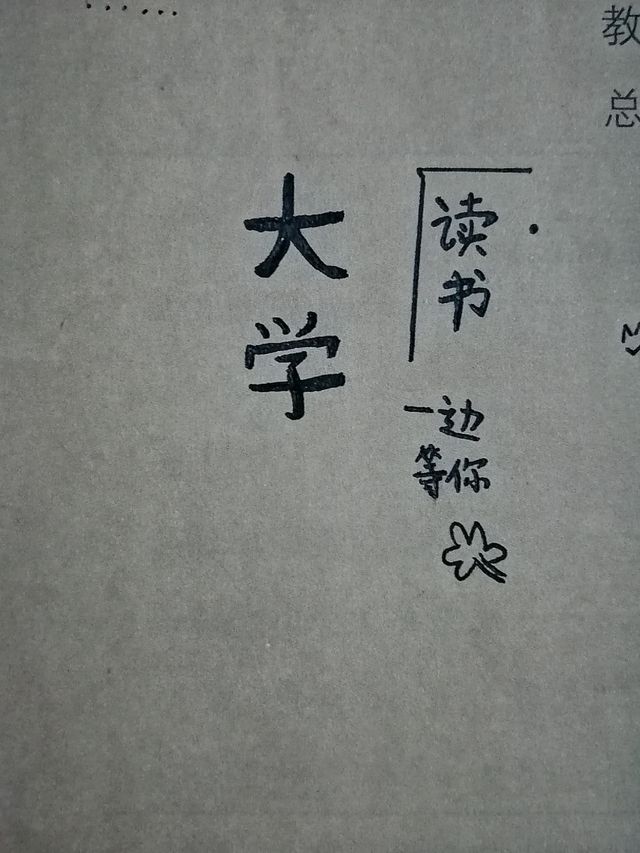 教
总
大
学
读
书
一边
等你